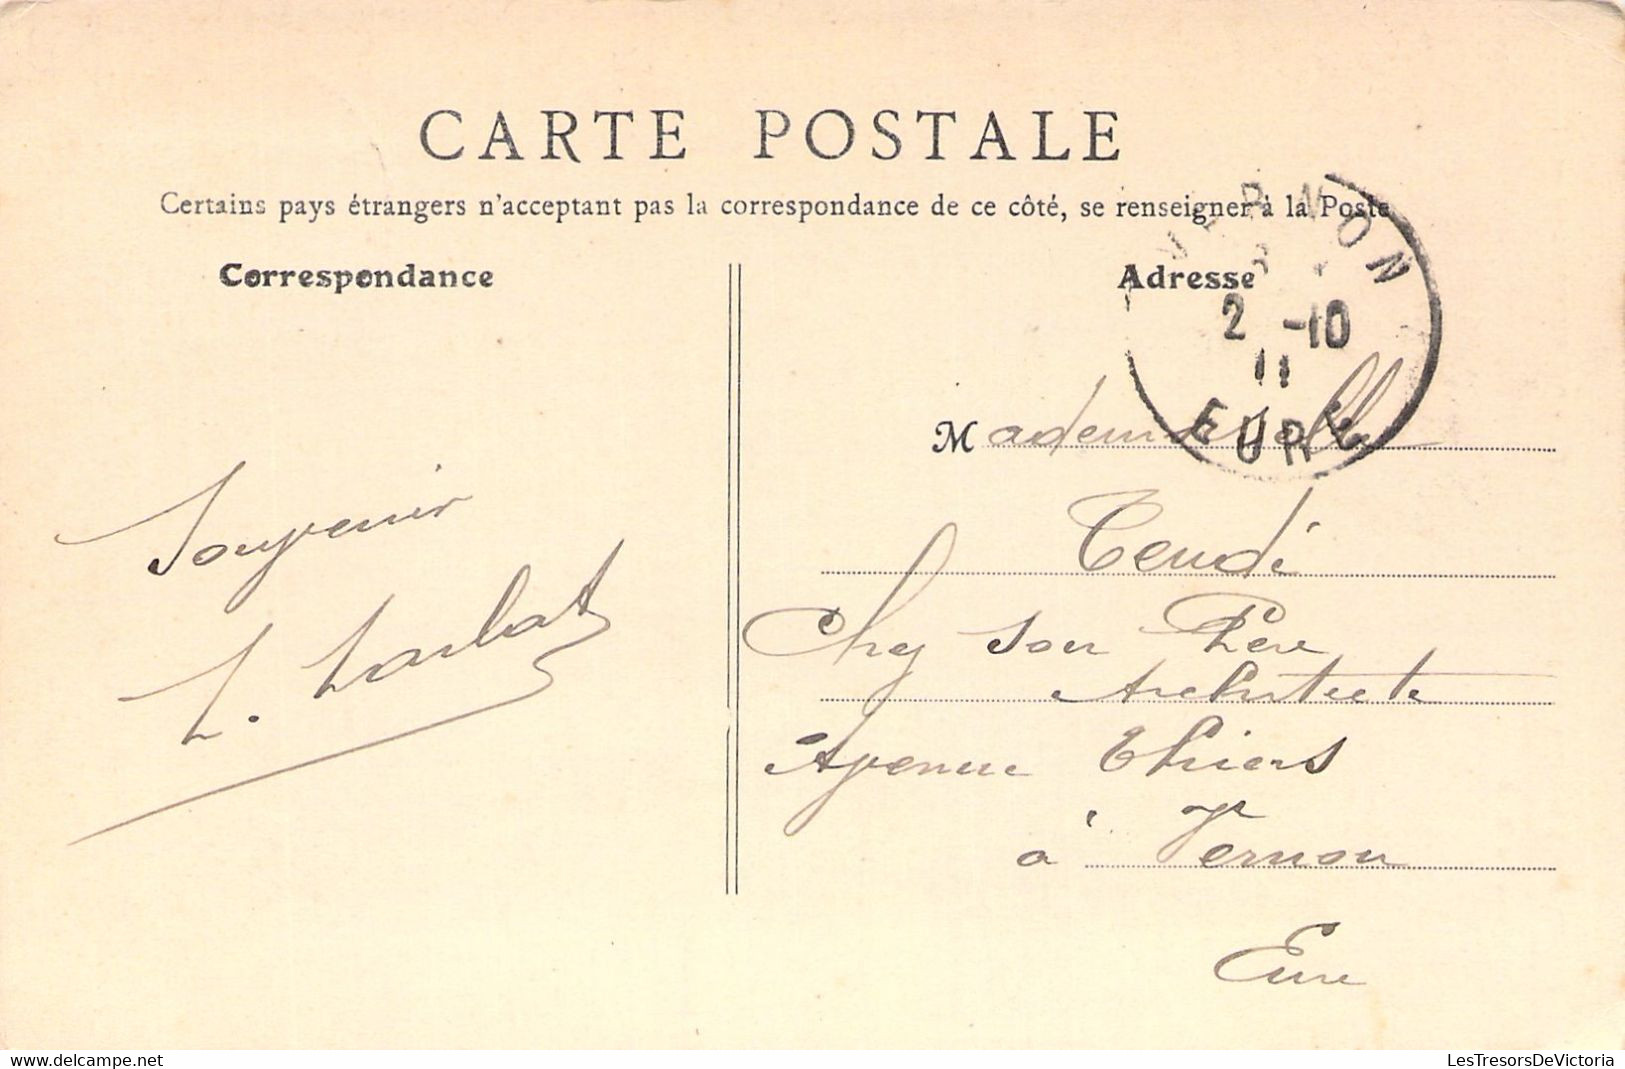 CARTE POSTALE
Certains pays étrangers n'acceptent pas la correspondance de ce côté, se renseigner à la Poste
Correspondance
Adresse
VERNON
2 -10
11
EURE
Mademoiselle
Tendi
Chez son Père
Architecte
Avenue Thiers
à Vernon
Eure
Souvenir
L.
www.delcampe.net
LesTresorsDeVictoria